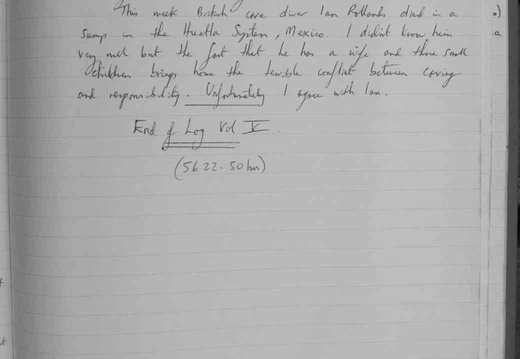 This week British cave diver Ian Rolland died in a
sump in the Huautla System, Mexico. I didn't know him
very well but the fact that he has a wife and three small
children brings home the terrible conflict between caving
and responsibility. Unfortunately I agree with Ian.
End of Log Vol V.
(5622.50 hrs)